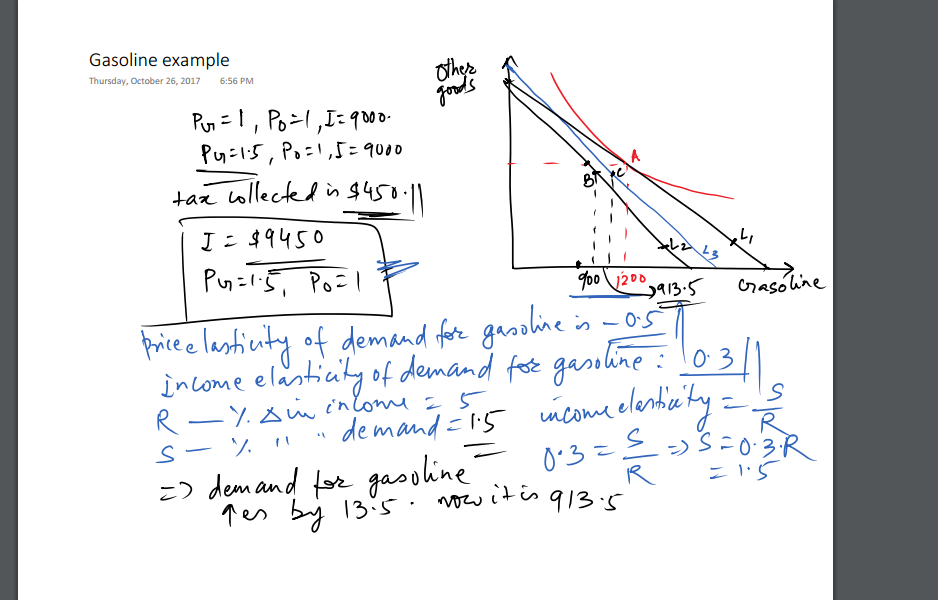 Gasoline example
Thursday, October 26, 2017 6:56 PM
PG=1, Po=1, I=9000.
PG=1.5, Po=1, I=9000
tax collected is $450.
I = $9450
PG=1.5, Po=1
Other
goods
A
B
C
L1
L2
L3
900
1200
913.5
Gasoline
Price elasticity of demand for gasoline is -0.5
income elasticity of demand for gasoline: 0.3
R — % Δ in income = 5
S — % " " demand = 1.5
income elasticity = S/R
0.3 = S/R => S = 0.3·R
= 1.5
=> demand for gasoline
↑es by 13.5. now it is 913.5